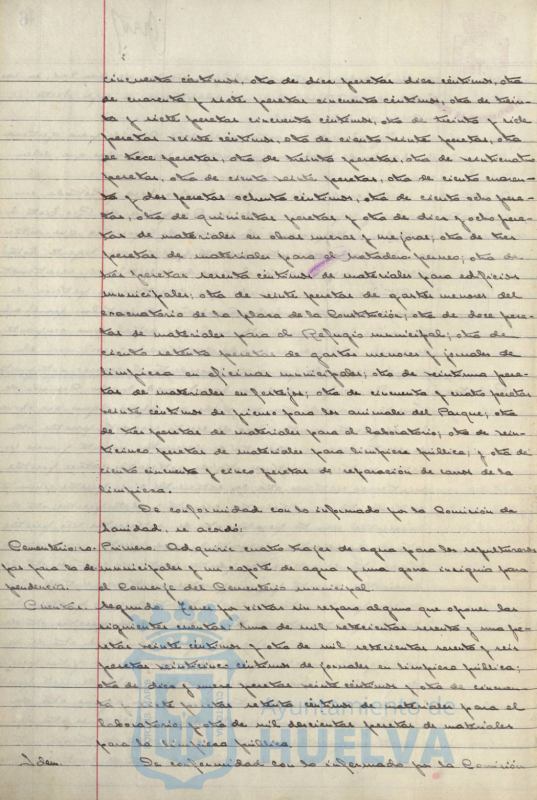 cincuenta céntimos, otra de diez pesetas diez céntimos, otra
de cuarenta y siete pesetas cincuenta céntimos, otra de trein-
ta y siete pesetas cincuenta céntimos, otra de treinta y siete
pesetas veinte céntimos, otra de ciento veinte pesetas, otra
de trece pesetas, otra de treinta pesetas, otra de veinticuatro
pesetas, otra de ciento veinte pesetas, otra de ciento cuaren-
ta y dos pesetas ochenta céntimos, otra de ciento ocho pese-
tas, otra de quinientas pesetas y otra de diez y ocho pese-
tas de materiales en obras nuevas y mejoras; otra de tres
pesetas de materiales para el matadero; otra de
tres pesetas sesenta céntimos de materiales para edificios
municipales; otra de veinte pesetas de gastos menores del
evacuatorio de la plaza de la Constitución; otra de doce pese-
tas de materiales para el Refugio municipal; otra de
ciento setenta pesetas de gastos menores y jornales de
limpieza en oficinas municipales; otra de veintiuna pese-
tas de materiales en festejos; otra de cincuenta y cuatro pesetas
veinte céntimos de pienso para los animales del Parque; otra
de tres pesetas de materiales para el laboratorio; otra de vein-
ticinco pesetas de materiales para limpieza pública; y otra de
ciento cincuenta y cinco pesetas de reparación de carros de la
limpieza.
De conformidad con lo informado por la Comisión de
Sanidad, se acordó:
Cementerio: ro- Primero. Adquirir cuatro trajes de agua para los sepultureros
pas para la de- municipales y un capote de agua y una gorra insignia para
pendencia. el Conserje del Cementerio municipal.
Cuentas. Segundo. Tener por vistas sin reparo alguno que oponer las
siguientes cuentas: una de mil setecientas sesenta y una pe-
setas veinte céntimos y otra de mil setecientas sesenta y seis
pesetas veinticinco céntimos de jornales en limpieza pública;
otra de diez y nueve pesetas veinte céntimos y otra de cincuen-
ta y siete pesetas setenta céntimos de materiales para el
laboratorio; y otra de mil doscientas pesetas de materiales
para la limpieza pública.
Idem. De conformidad con lo informado por la Comisión
Ayuntamiento de
HUELVA